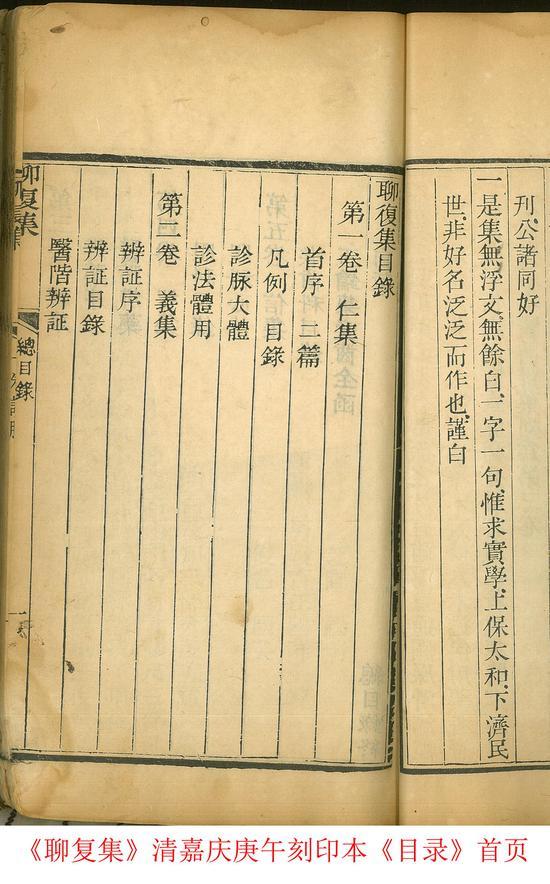 刊公諸同好
一是集無浮文、無餘白、一字一句、惟求實學、上保太和、下濟民
世、非好名泛泛而作也、謹白
聊復集目錄
第一卷 仁集
首序 二篇
凡例 目錄
診脈大體
診法體用
第二卷 義集
辨証序
辨証目錄
醫階辨証
聊复集
總目錄
一
《聊复集》清嘉庆庚午刻印本《目录》首页